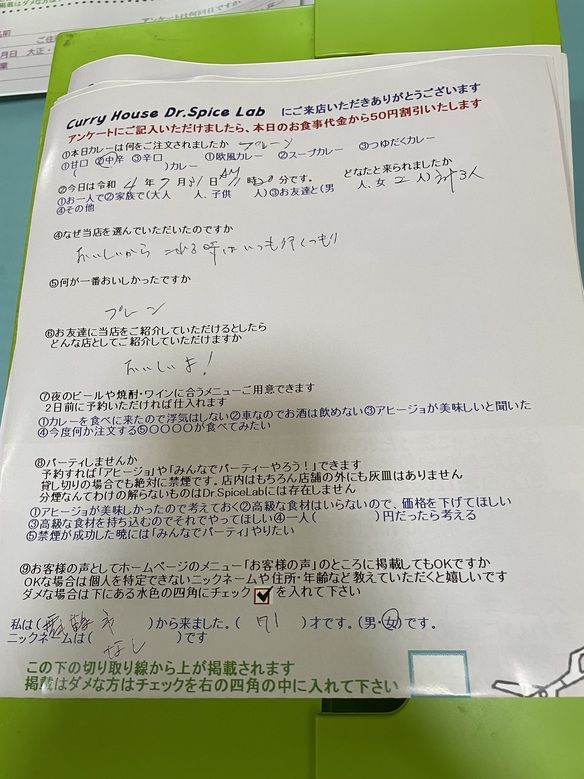 掲載はダメな方は
アンケートは何回目ですか
月日 大正・
Curry House Dr.Spice Lab にご来店いただきありがとうございます
アンケートにご記入いただけましたら、本日のお食事代金から50円割引いたします
①本日カレーは何をご注文されましたか プレーン
①甘口 ②中辛 ③辛口 ①欧風カレー ②スープカレー ③つゆだくカレー
( )カレー
②今日は令和 4 年 7 月 31 日 AM 11 時 20 分です。 どなたと来られましたか
①お一人で②家族で(大人 人、子供 人)③お友達と(男 人、女 2 人)計3人
④その他
④なぜ当店を選んでいただいたのですか
おいしいから 来れる時はいつも行くつもり
⑤何が一番おいしかったですか
プレーン
⑥お友達に当店をご紹介していただけるとしたら
どんな店としてご紹介していただけますか
おいしいよ!
⑦夜のビールや焼酎・ワインに合うメニューご用意できます
2日前に予約いただければ仕入れます
①カレーを食べに来たので浮気はしない②車なのでお酒は飲めない③アヒージョが美味しいと聞いた
④今度何か注文する⑤〇〇〇〇が食べてみたい
⑧パーティしませんか
予約すれば「アヒージョ」や「みんなでパーティーやろう!」できます
貸し切りの場合でも絶対に禁煙です。店内はもちろん店舗の外にも灰皿はありません
分煙なんてわけの解らないものはDr.SpiceLabには存在しません
①アヒージョが美味しかったので考えておく②高級な食材はいらないので、価格を下げてほしい
③高級な食材を持ち込むのでそれでやってほしい④一人( )円だったら考える
⑤禁煙が成功した暁には「みんなでパーティ」やりたい
⑨お客様の声としてホームページのメニュー「お客様の声」のところに掲載してもOKですか
OKな場合は個人を特定できないニックネームや住所・年齢など教えていただくと嬉しいです
ダメな場合は下にある水色の四角にチェック を入れて下さい
私は( 市 )から来ました。( 71 )才です。(男・女)です。
ニックネームは( なし )です
この下の切り取り線から上が掲載されます
掲載はダメな方はチェックを右の四角の中に入れて下さい